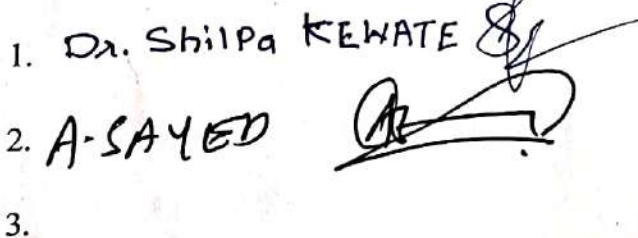 1. Dr. Shilpa KEWATE
2. A-SAYED
3.